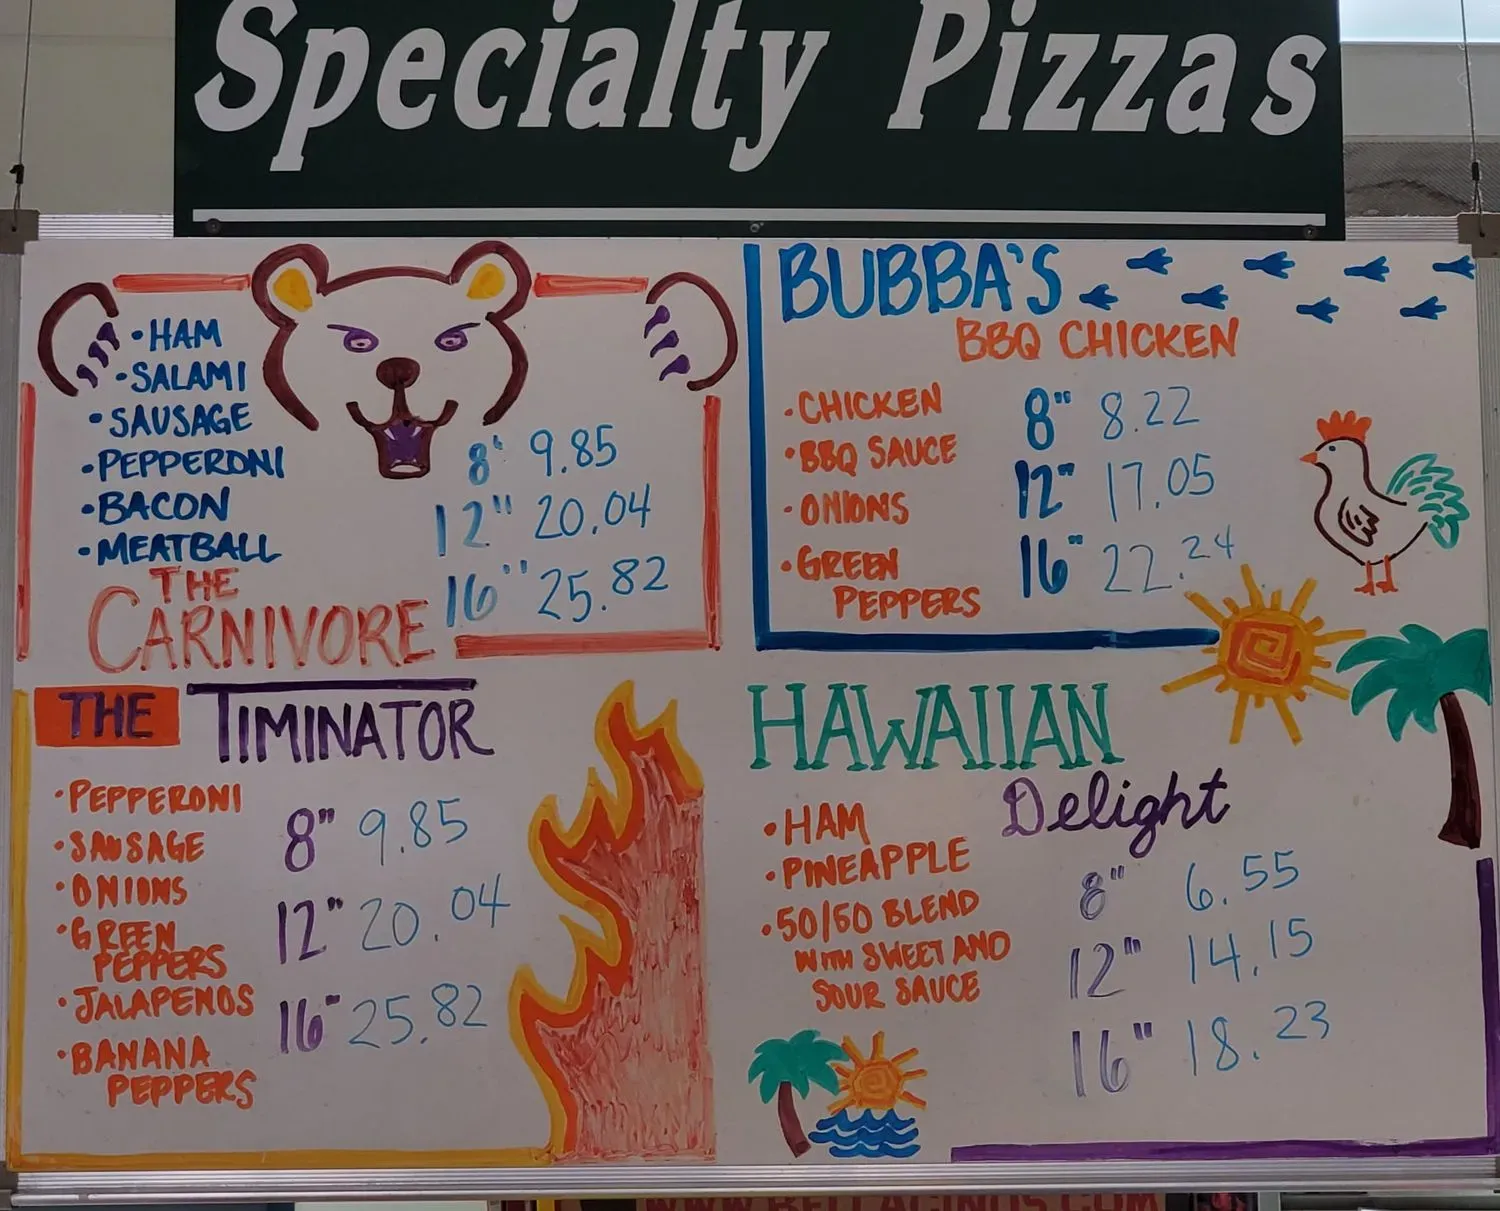 Specialty Pizzas
• HAM
• SALAMI
• SAUSAGE
• PEPPERONI
• BACON
• MEATBALL
THE
CARNIVORE
8" 9.85
12" 20.04
16" 25.82
BUBBA'S
BBQ CHICKEN
• CHICKEN
• BBQ SAUCE
• ONIONS
• GREEN
PEPPERS
8" 8.22
12" 17.05
16" 22.24
THE TIMINATOR
• PEPPERONI
• SAUSAGE
• ONIONS
• GREEN
PEPPERS
• JALAPENOS
• BANANA
PEPPERS
8" 9.85
12" 20.04
16" 25.82
HAWAIIAN
Delight
• HAM
• PINEAPPLE
• 50/50 BLEND
WITH SWEET AND
SOUR SAUCE
8" 6.55
12" 14.15
16" 18.23
WWW.BELLACINOS.COM